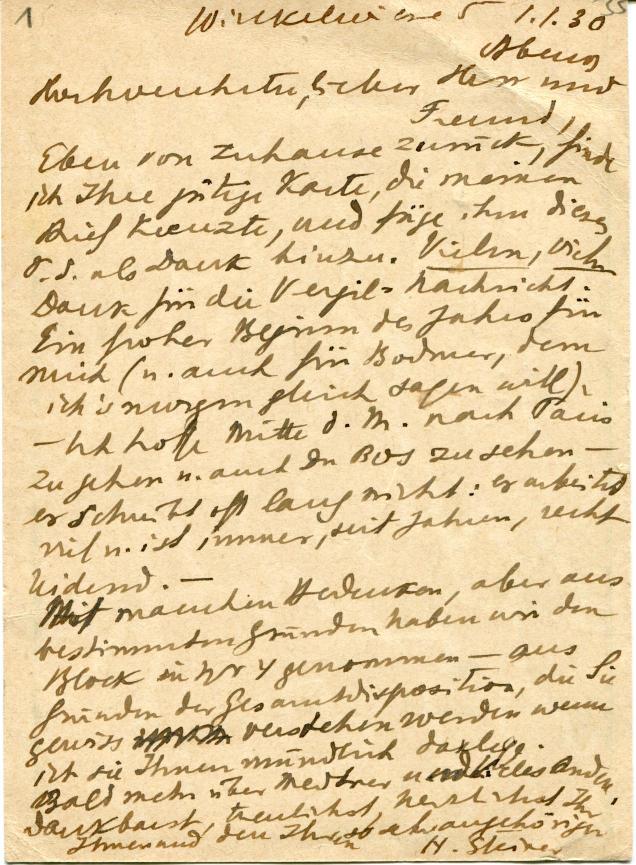 1
Winkelwiese 5 1.1.30
Abend
Hochverehrter, lieber Herr und
Freund,
Eben von zuhause zurück, finde
ich Ihre gütige Karte, die meinen
Brief kreuzte, und füge ihm dieses
P.S. als Dank hinzu. Vielen, vielen
Dank für die Vergil-Nachricht:
Ein froher Beginn des Jahres für
mich (u. auch für Bodmer, dem
ich's morgen gleich sagen will).
– Ich hoffe Mitte d. M. nach Paris
zu gehen u. auch Du Bos zu sehen –
er schreibt oft lang nicht: er arbeitet
viel u. ist immer, seit Jahren, recht
leidend. –
Mit manchen Bedenken, aber aus
bestimmten Gründen haben wir den
Block in Nr 4 genommen – aus
Gründen der Gesamtdisposition, die Sie
gewiss verstehen werden wenn
ich sie Ihnen mündlich darlege.
Bald mehr über Medtner und vieles Andere.
dankbarst, treulichst, herzlichst Ihr
Ihnen und den Ihren so sehr angehöriger
H. Steiner